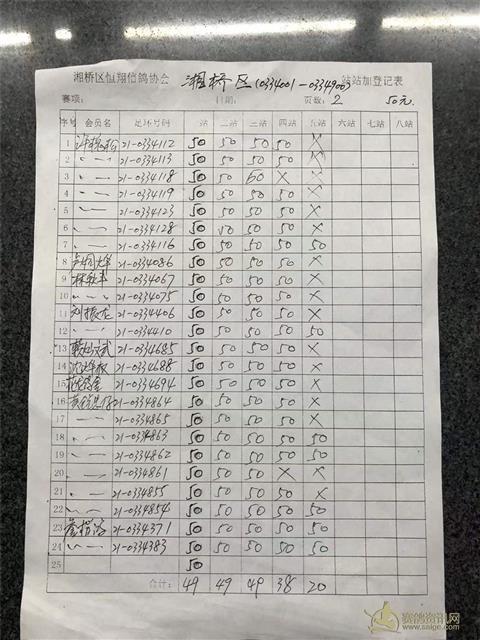 湘桥区恒翔信鸽协会 湘桥区(0334001-0334900) 站站加登记表
赛项: 日期: 页数: 2 50元
序号 会员名 足环号码 一站 二站 三站 四站 五站 六站 七站 八站
1 21-0334112 50 50 50 50 X
2 〃 21-0334113 50 50 50 50 X
3 〃 21-0334118 50 50 50 X X
4 〃 21-0334119 50 50 50 50 X
5 〃 21-0334123 50 50 50 50 X
6 〃 21-0334128 50 50 50 50 X
7 〃 21-0334116 50 50 50 50 50
8 21-0334086 50 50 50 50 X
9 21-0334067 50 50 50 50 X
10 〃 21-0334075 50 50 50 50 X
11 刘振龙 21-0334406 50 50 50 50 X
12 〃 21-0334410 50 50 50 50 50
13 21-0334685 50 50 50 50 X
14 21-0334688 50 50 50 50 X
15 21-0334694 50 50 50 50 X
16 21-0334864 50 50 50 50 X
17 〃 21-0334865 50 50 50 50 X
18 〃 21-0334863 50 50 50 50 50
19 〃 21-0334862 50 50 50 50 50
20 〃 21-0334861 50 50 50 X X
21 〃 21-0334855 50 50 50 50 X
22 〃 21-0334854 50 50 50 50 50
23 21-0334371 50 50 50 50 50
24 〃 21-0334383 50 50 50 50 50
25 50
合计: 49 49 49 38 20
赛鸽资讯网
www.saige.com